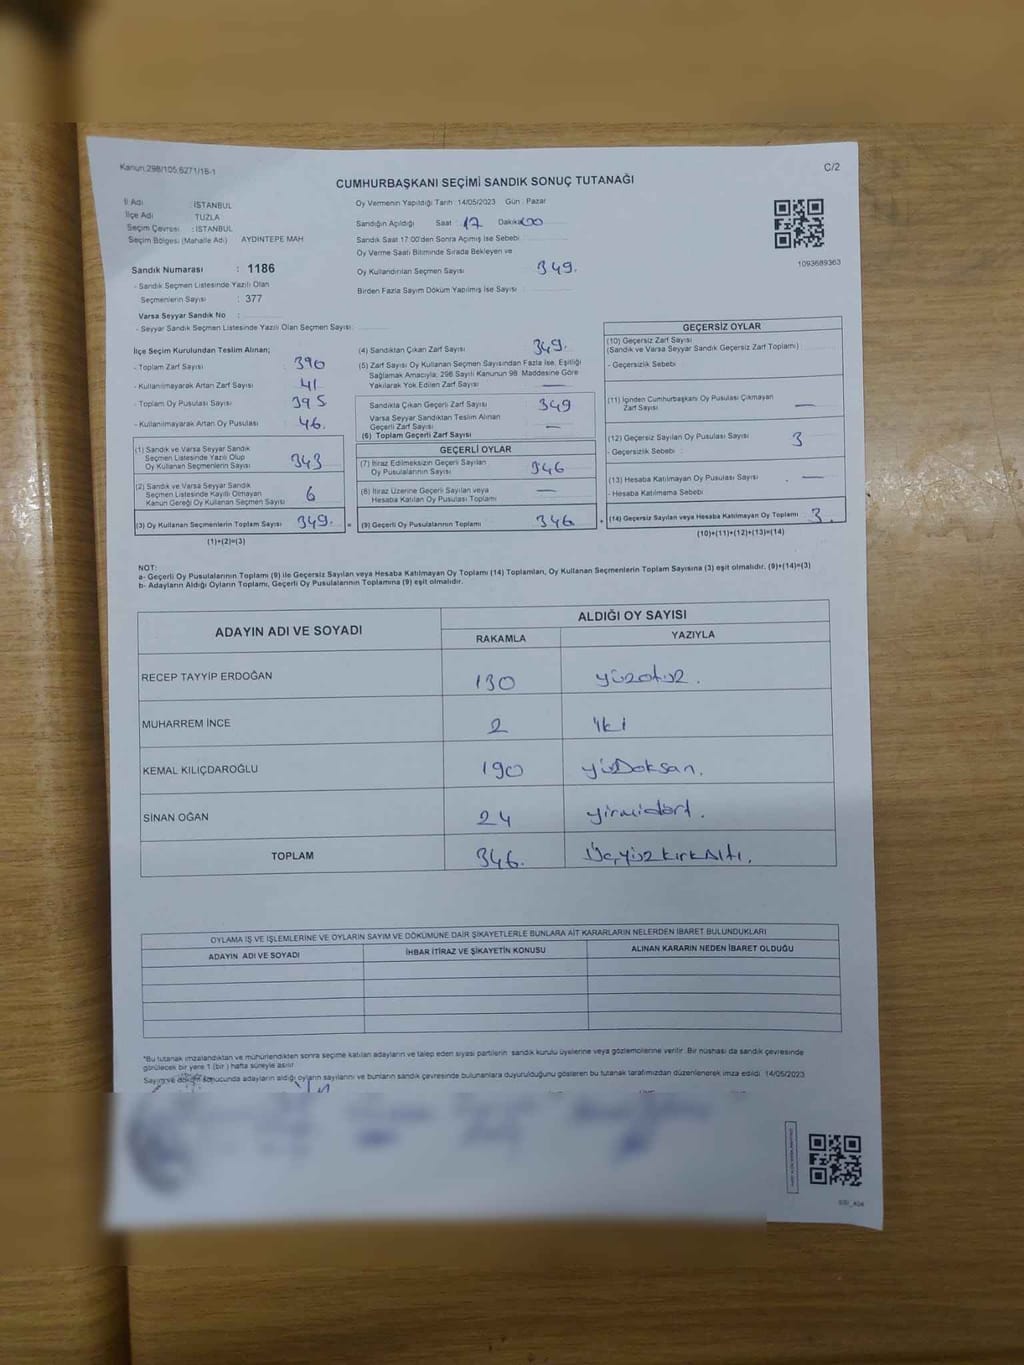 Kanun:298/105,6271/16-1
C/2
CUMHURBAŞKANI SEÇİMİ SANDIK SONUÇ TUTANAĞI
İl Adı : İSTANBUL
İlçe Adı TUZLA
Seçim Çevresi : İSTANBUL
Seçim Bölgesi (Mahalle Adı) AYDINTEPE MAH
Sandık Numarası : 1186
- Sandık Seçmen Listesinde Yazılı Olan
Seçmenlerin Sayısı : 377
Varsa Seyyar Sandık No :
- Seyyar Sandık Seçmen Listesinde Yazılı Olan Seçmen Sayısı:
Oy Vermenin Yapıldığı Tarih :14/05/2023 Gün : Pazar
Sandığın Açıldığı Saat : 17 Dakika:00
Sandık Saat 17:00'den Sonra Açılmış İse Sebebi
Oy Verme Saati Bitiminde Sırada Bekleyen ve
Oy Kullandırılan Seçmen Sayısı 349.
Birden Fazla Sayım Döküm Yapılmış İse Sayısı :
1093689363
İlçe Seçim Kurulundan Teslim Alınan;
- Toplam Zarf Sayısı : 390
- Kullanılmayarak Artan Zarf Sayısı : 41
- Toplam Oy Pusulası Sayısı : 395
- Kullanılmayarak Artan Oy Pusulası : 46.
(1) Sandık ve Varsa Seyyar Sandık
Seçmen Listesinde Yazılı Olup
Oy Kullanan Seçmenlerin Sayısı 343
(2) Sandık ve Varsa Seyyar Sandık
Seçmen Listesinde Kayıtlı Olmayan
Kanun Gereği Oy Kullanan Seçmen Sayısı 6
(3) Oy Kullanan Seçmenlerin Toplam Sayısı 349. =
(1)+(2)=(3)
(4) Sandıktan Çıkan Zarf Sayısı 349.
(5) Zarf Sayısı Oy Kullanan Seçmen Sayısından Fazla İse, Eşitliği
Sağlamak Amacıyla, 298 Sayılı Kanunun 98. Maddesine Göre
Yakılarak Yok Edilen Zarf Sayısı —
Sandıkta Çıkan Geçerli Zarf Sayısı 349
Varsa Seyyar Sandıktan Teslim Alınan
Geçerli Zarf Sayısı —
(6) Toplam Geçerli Zarf Sayısı
GEÇERLİ OYLAR
(7) İtiraz Edilmeksizin Geçerli Sayılan
Oy Pusulalarının Sayısı 346
(8) İtiraz Üzerine Geçerli Sayılan veya
Hesaba Katılan Oy Pusulası Toplamı —
(9) Geçerli Oy Pusulalarının Toplamı 346 +
GEÇERSİZ OYLAR
(10) Geçersiz Zarf Sayısı
(Sandık ve Varsa Seyyar Sandık Geçersiz Zarf Toplamı)
- Geçersizlik Sebebi
(11) İçinden Cumhurbaşkanı Oy Pusulası Çıkmayan
Zarf Sayısı —
(12) Geçersiz Sayılan Oy Pusulası Sayısı 3
- Geçersizlik Sebebi :
(13) Hesaba Katılmayan Oy Pusulası Sayısı —
- Hesaba Katılmama Sebebi
(14) Geçersiz Sayılan veya Hesaba Katılmayan Oy Toplamı 3.
(10)+(11)+(12)+(13)=(14)
NOT:
a- Geçerli Oy Pusulalarının Toplamı (9) ile Geçersiz Sayılan veya Hesaba Katılmayan Oy Toplamı (14) Toplamları, Oy Kullanan Seçmenlerin Toplam Sayısına (3) eşit olmalıdır. (9)+(14)=(3)
b- Adayların Aldığı Oyların Toplamı, Geçerli Oy Pusulalarının Toplamına (9) eşit olmalıdır.
ADAYIN ADI VE SOYADI ALDIĞI OY SAYISI
RAKAMLA YAZIYLA
RECEP TAYYİP ERDOĞAN 130 yüzotuz.
MUHARREM İNCE 2 iki
KEMAL KILIÇDAROĞLU 190 yüzDoksan.
SİNAN OĞAN 24 yirmidört.
TOPLAM 346. Üçyüzkırkaltı.
OYLAMA İŞ VE İŞLEMLERİNE VE OYLARIN SAYIM VE DÖKÜMÜNE DAİR ŞİKAYETLERLE BUNLARA AİT KARARLARIN NELERDEN İBARET BULUNDUKLARI
ADAYIN ADI VE SOYADI İHBAR İTİRAZ VE ŞİKAYETİN KONUSU ALINAN KARARIN NEDEN İBARET OLDUĞU
*Bu tutanak imzalandıktan ve mühürlendikten sonra seçime katılan adayların ve talep eden siyasi partilerin sandık kurulu üyelerine veya gözlemcilerine verilir. Bir nüshası da sandık çevresinde
görülecek bir yere 1 (bir ) hafta süreyle asılır.
Sayım ve döküm sonucunda adayların aldığı oyların sayılarını ve bunların sandık çevresinde bulunanlara duyurulduğunu gösteren bu tutanak tarafımızdan düzenlenerek imza edildi. 14/05/2023